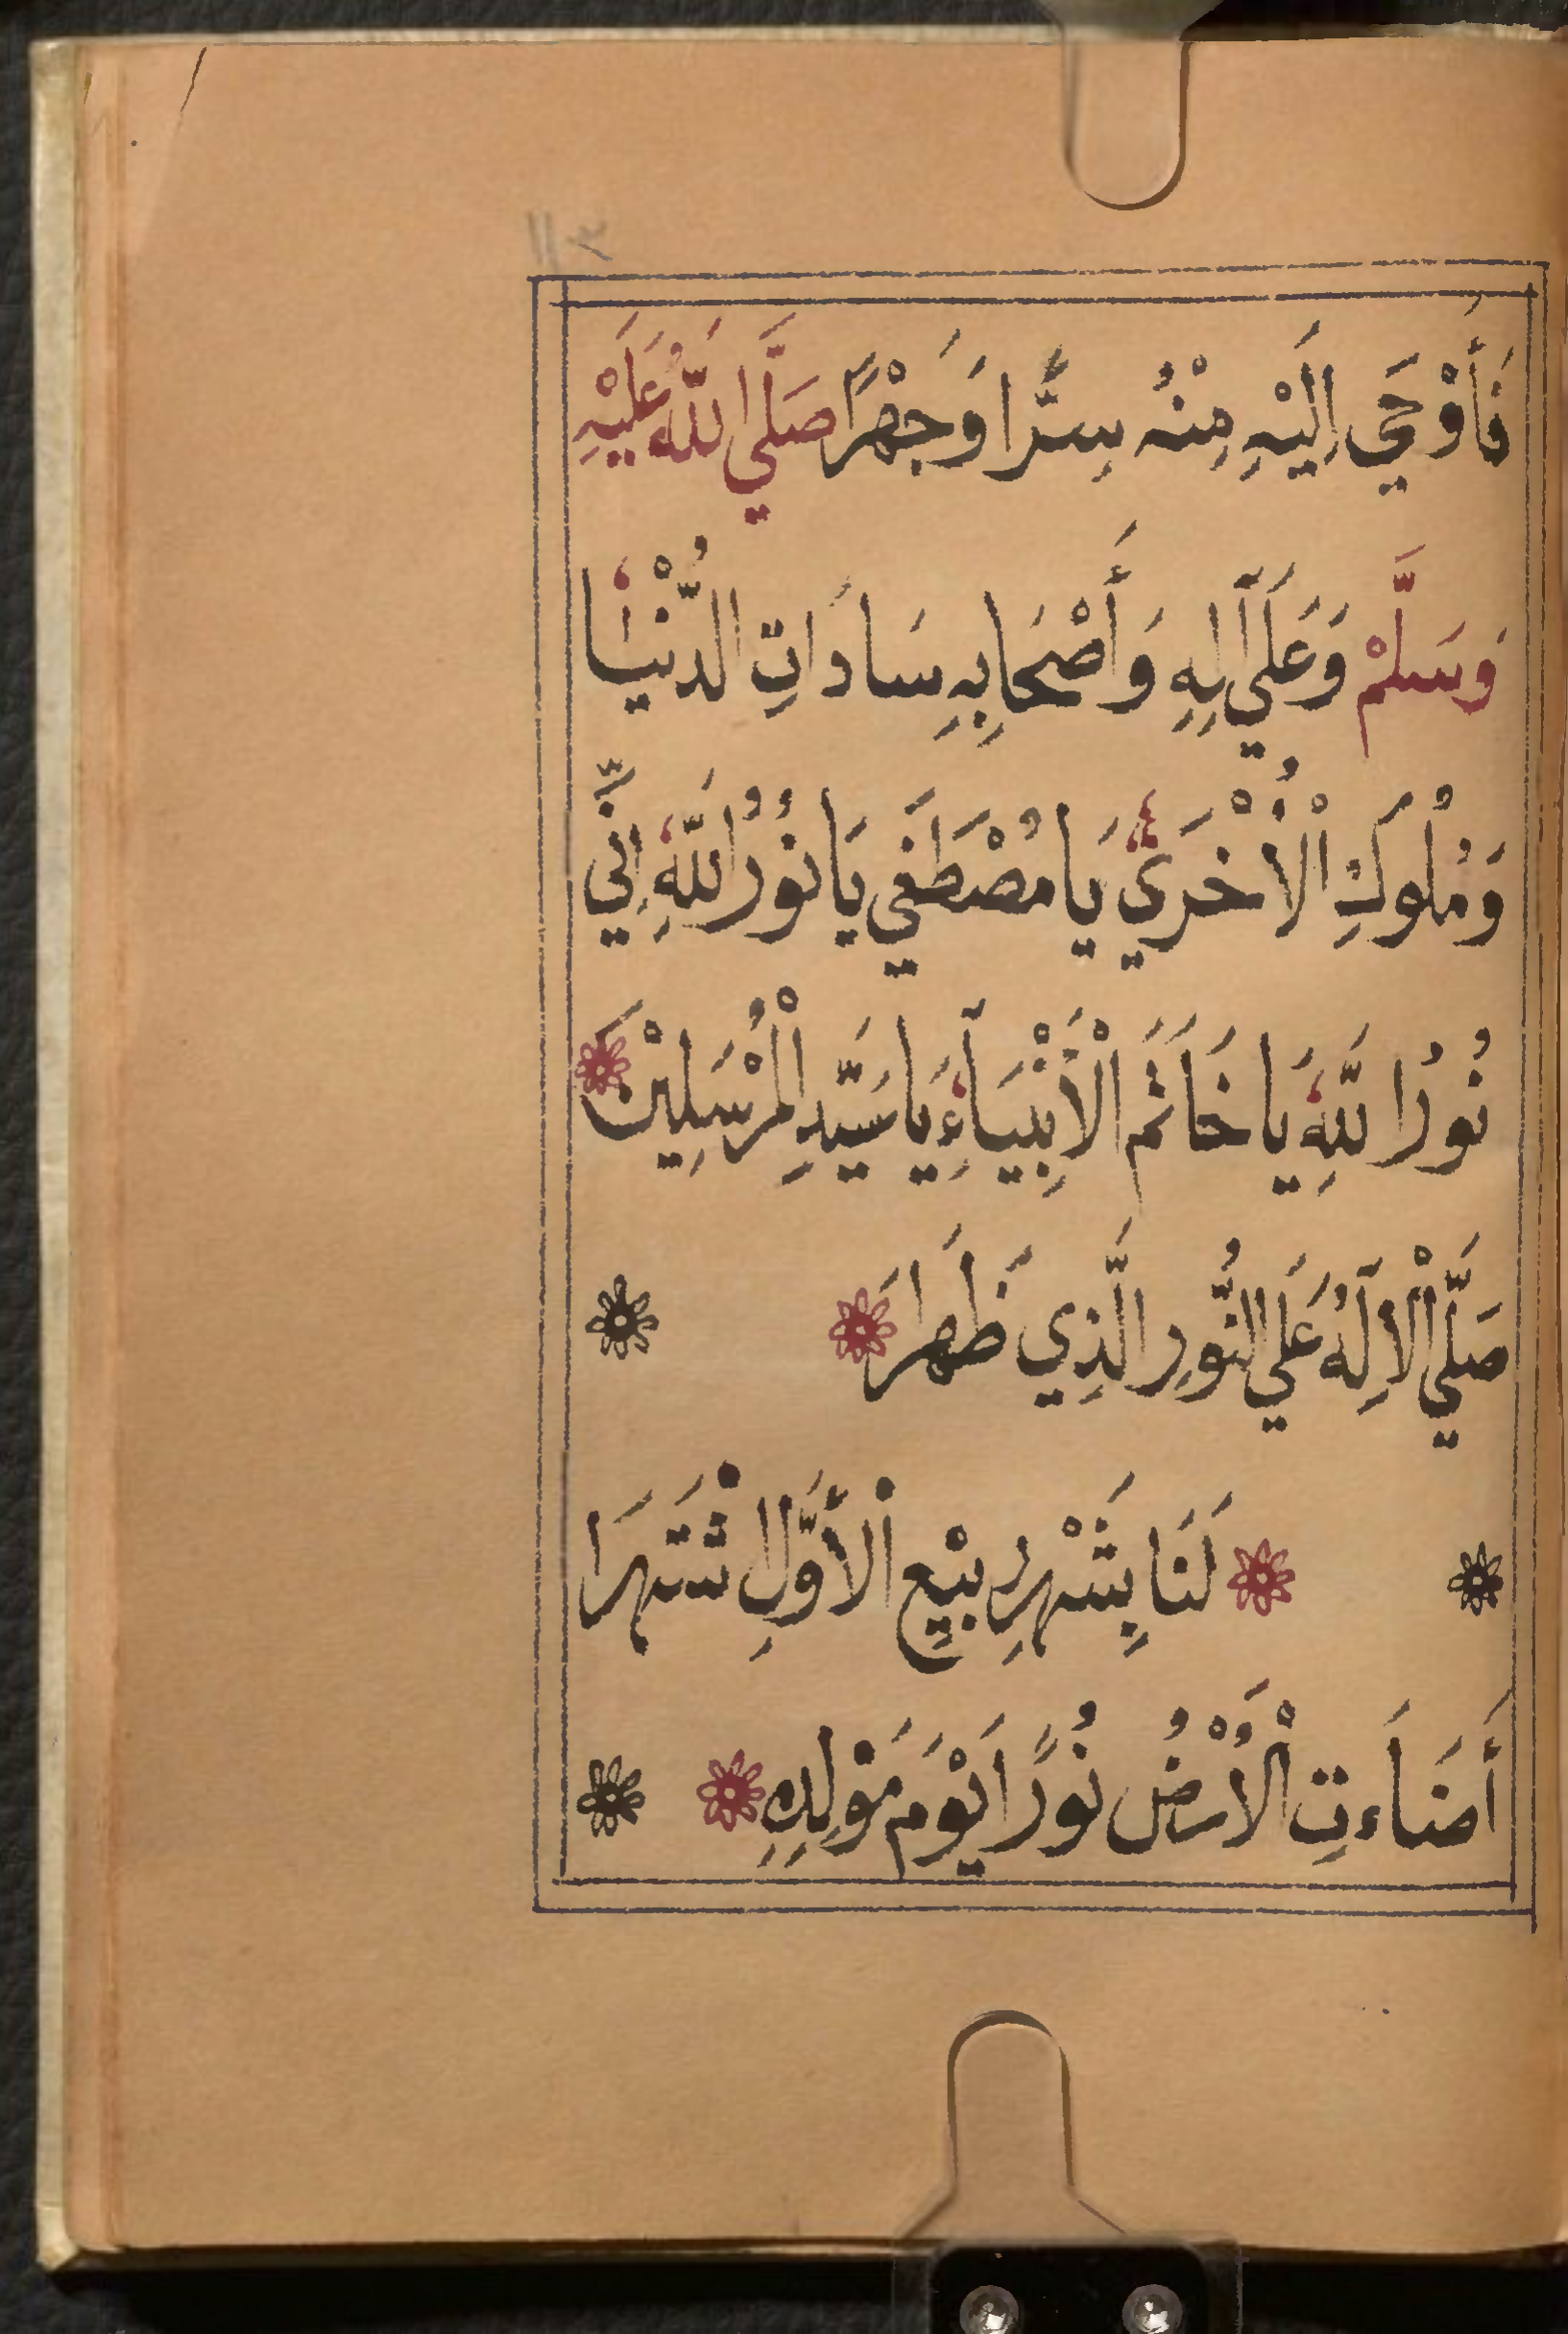 ١١٣
فَأَوْحَي اِلَيْهِ مِنْهُ سِرًّا وَجَهْرًا صَلَّي اللهُ عَلَيْهِ
وَسَلَّمْ وَعَلَي اٰلِهِ وَأَصْحَابِهِ سَادَاتِ الدُّنْيَا
وَمُلُوكِ الْاُخْرَيْ يَا مُصْطَفَي يَا نُوْرُ اللّٰهِ اِنِّي
نُوْرُ اللّٰهِ يَا خَاتَمَ الْأَنْبِيَآءِ يَا سَيِّدِ الْمُرْسَلِيْنَ
صَلَّي الْاِلٰهُ عَلَي النُّوْرِ الَّذِي ظَهَرَا
لَنَا بِشَهْرِ رَبِيْعِ الْأَوَّلِ اشْتَهَرَا
أَضَاءَتِ الْاَرْضُ نُوْرًا يَوْمَ مَوْلِدِهِ